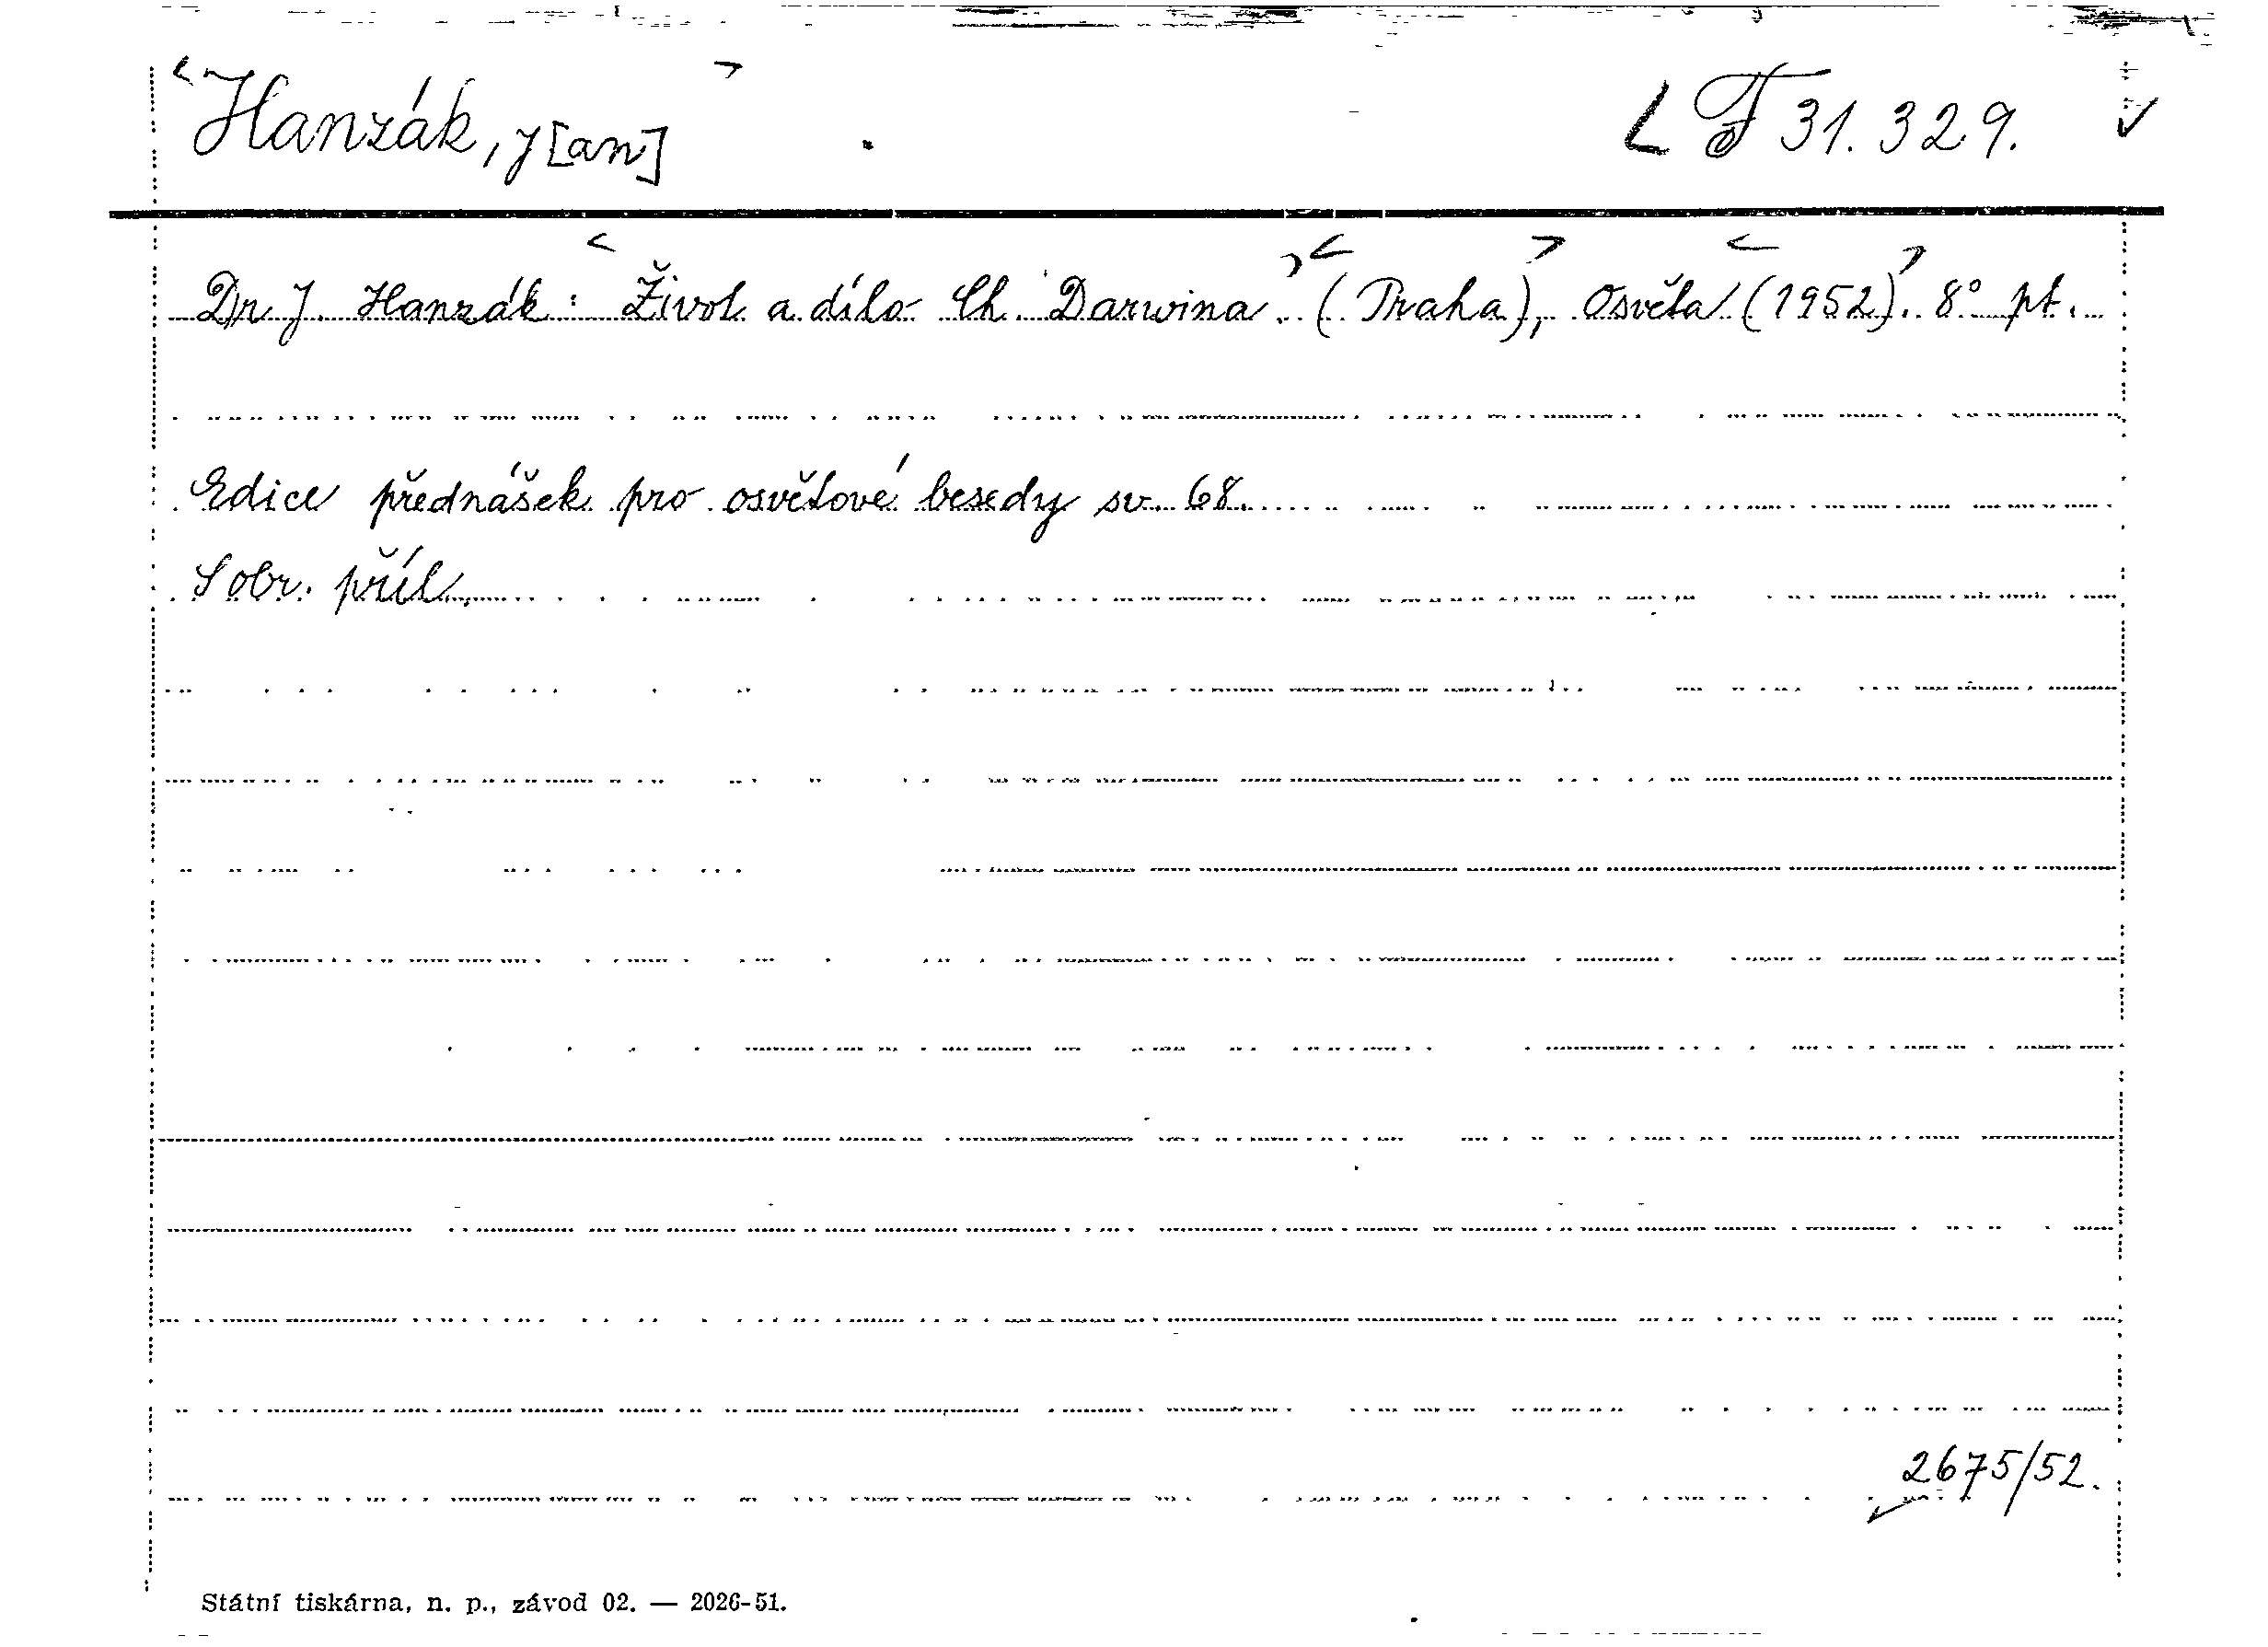 Hanzák, J[an] F 31.329.
Dr J. Hanzák: Život a dílo Ch. Darwina. (Praha), Osvěta (1952). 8° pt.
Edice přednášek pro osvětové besedy sv. 68.
S obr. příl.
2675/52.
Státní tiskárna, n. p., závod 02. — 2026-51.